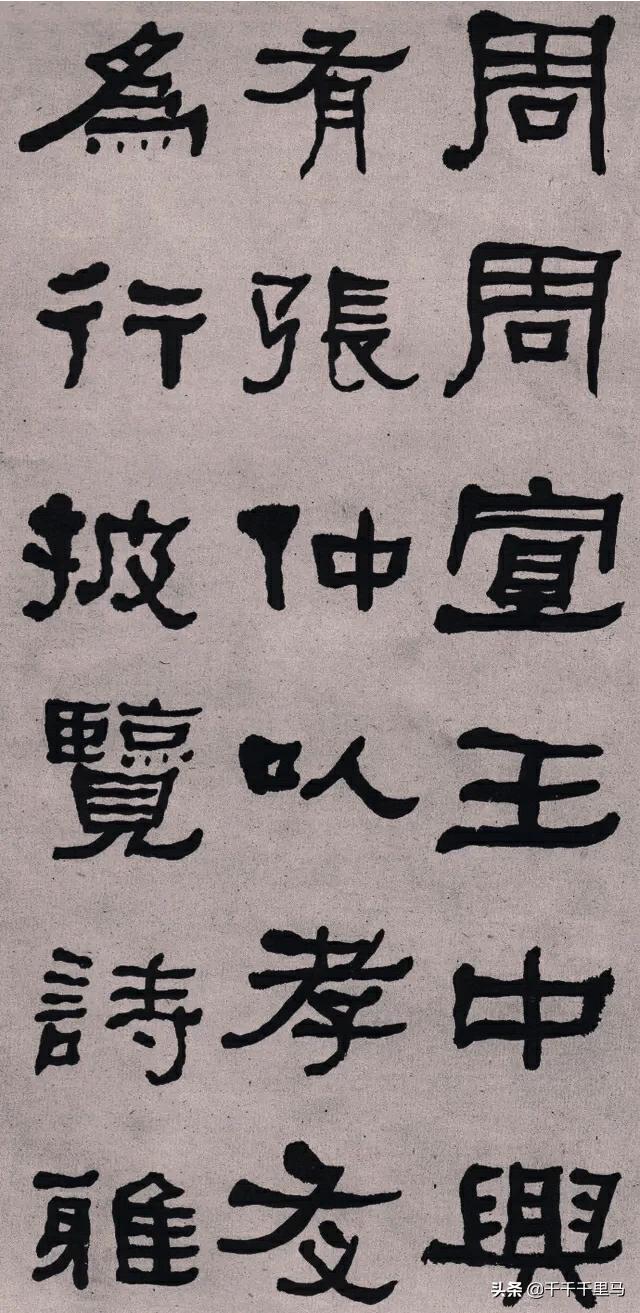 周周宣王中興
有張仲以孝友
為行披覽詩雅
头条 @千千千里马